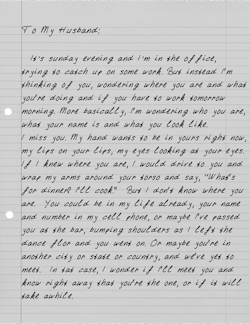 To My Husband;
It's sunday evening and I'm in the office,
trying to catch up on some work. But instead I'm
thinking of you, wondering where you are and what
you're doing and if you have to work tomorrow
morning. More basically, I'm wondering who you are,
what your name is and what you look like.
I miss you. My hand wants to be in yours right now,
my lips on your lips, my eyes looking at your eyes.
If I knew where you are, I would drive to you and
wrap my arms around your torso and say, "What's
for dinner? I'll cook." But I don't know where you
are. You could be in my life already, your name
and number in my cell phone, or maybe I've passed
you at the bar, bumping shoulders as I left the
dance flor and you went on. Or maybe you're in
another city or state or country, and we've yet to
meet. In tat case, I wonder if I'll meet you and
know right away that you're the one, or if it will
take awhile.